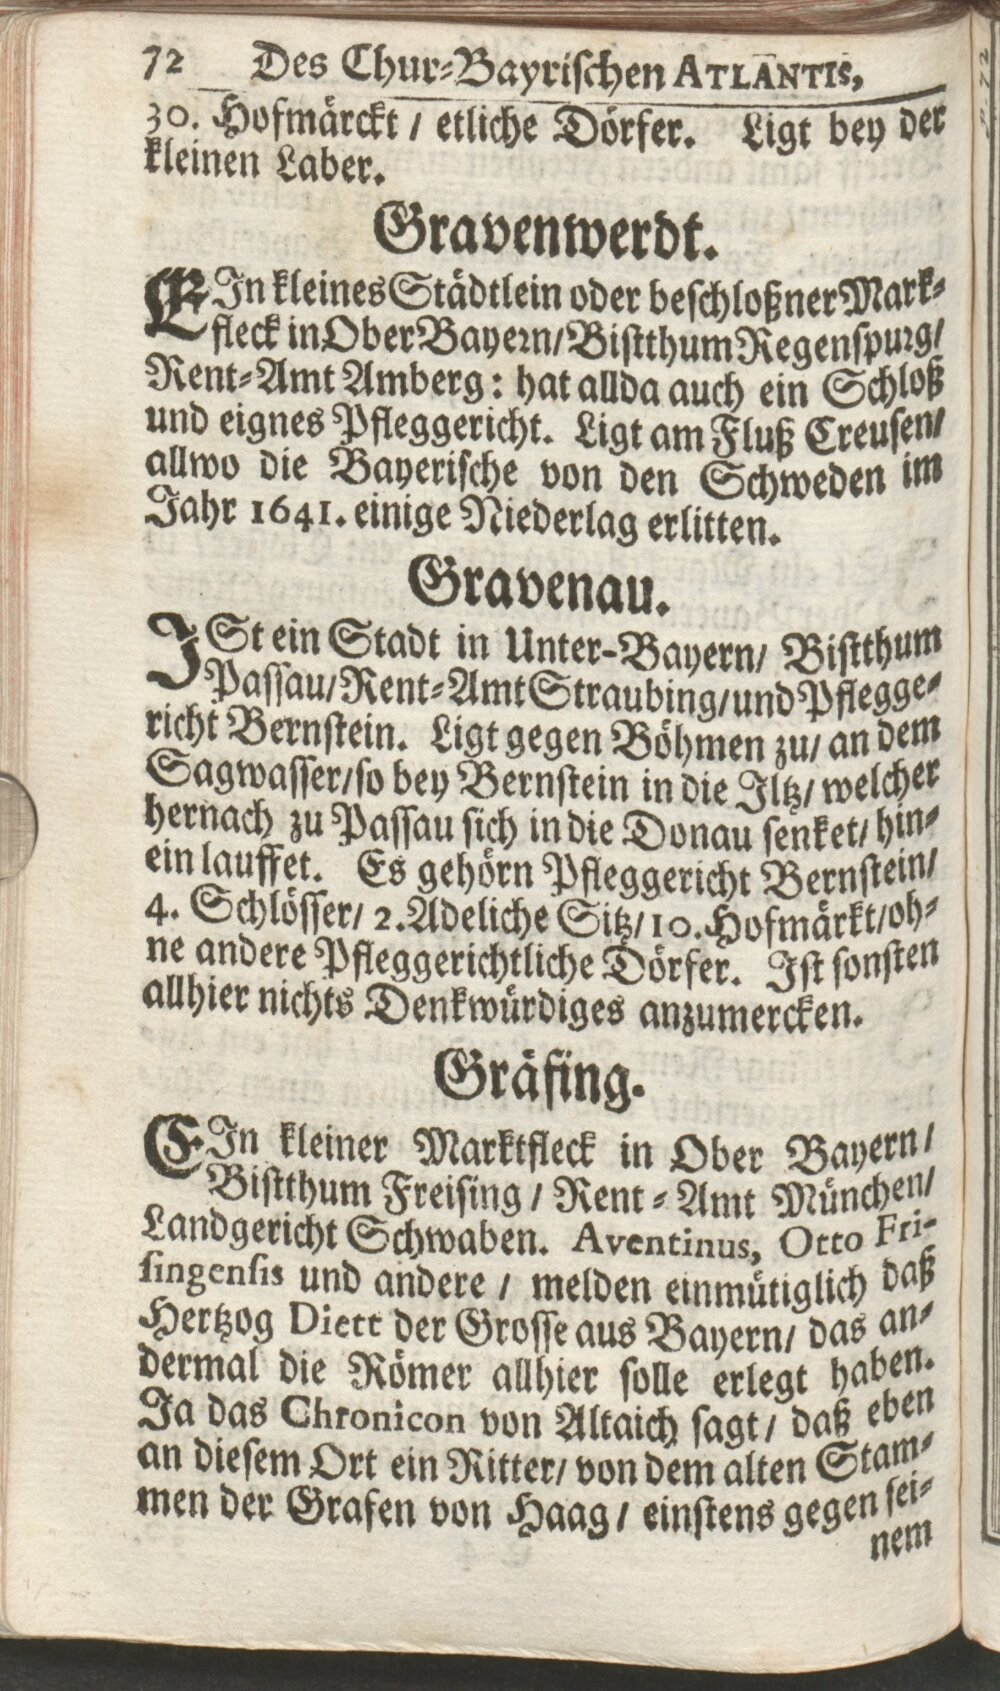 72 Des Chur-Bayrischen ATLANTIS,
30. Hofmärckt / etliche Dörfer. Ligt bey der
kleinen Laber.
Gravenwerdt.
EIn kleines Städtlein oder beschloßner Mark-
fleck in Ober Bayern/ Bistthum Regenspurg/
Rent-Amt Amberg: hat allda auch ein Schloß
und eignes Pfleggericht. Ligt am Fluß Creusen/
allwo die Bayerische von den Schweden im
Jahr 1641. einige Niederlag erlitten.
Gravenau.
ISt ein Stadt in Unter-Bayern/ Bistthum
Passau/ Rent-Amt Straubing/ und Pflegge-
richt Bernstein. Ligt gegen Böhmen zu/ an dem
Sagwasser/ so bey Bernstein in die Iltz/ welcher
hernach zu Passau sich in die Donau senket/ hin-
ein lauffet. Es gehörn Pfleggericht Bernstein/
4. Schlösser/ 2. Adeliche Sitz/ 10. Hofmärkt/ oh-
ne andere Pfleggerichtliche Dörfer. Ist sonsten
allhier nichts Denkwürdiges anzumercken.
Gräfing.
EIn kleiner Marktfleck in Ober Bayern/
Bistthum Freising / Rent-Amt München/
Landgericht Schwaben. Aventinus, Otto Fri-
singensis und andere / melden einmütiglich daß
Hertzog Diett der Grosse aus Bayern/ das an-
dermal die Römer allhier solle erlegt haben.
Ja das Chronicon von Altaich sagt / daß eben
an diesem Ort ein Ritter/ von dem alten Stam-
men der Grafen von Haag / einstens gegen sei-
nem